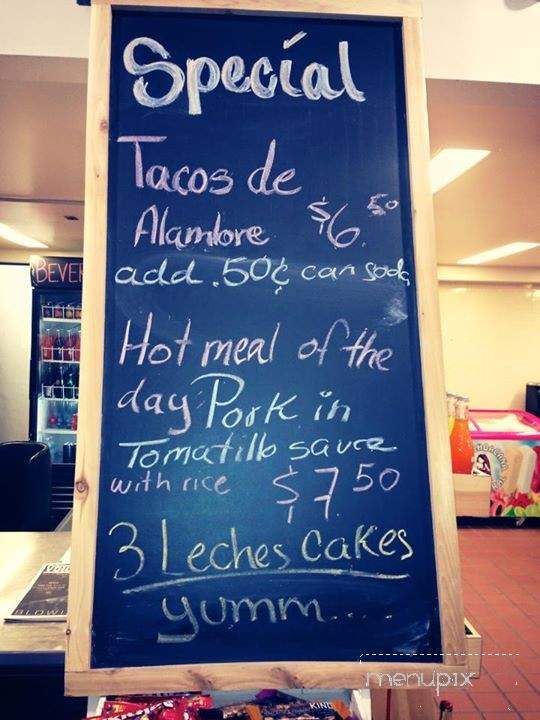 Special
Tacos de
Alambre $6.50
add .50¢ can soda
Hot meal of the
day Pork in
Tomatillo sauce
with rice $7.50
3 Leches Cakes
yumm.....
BEVER
menupix